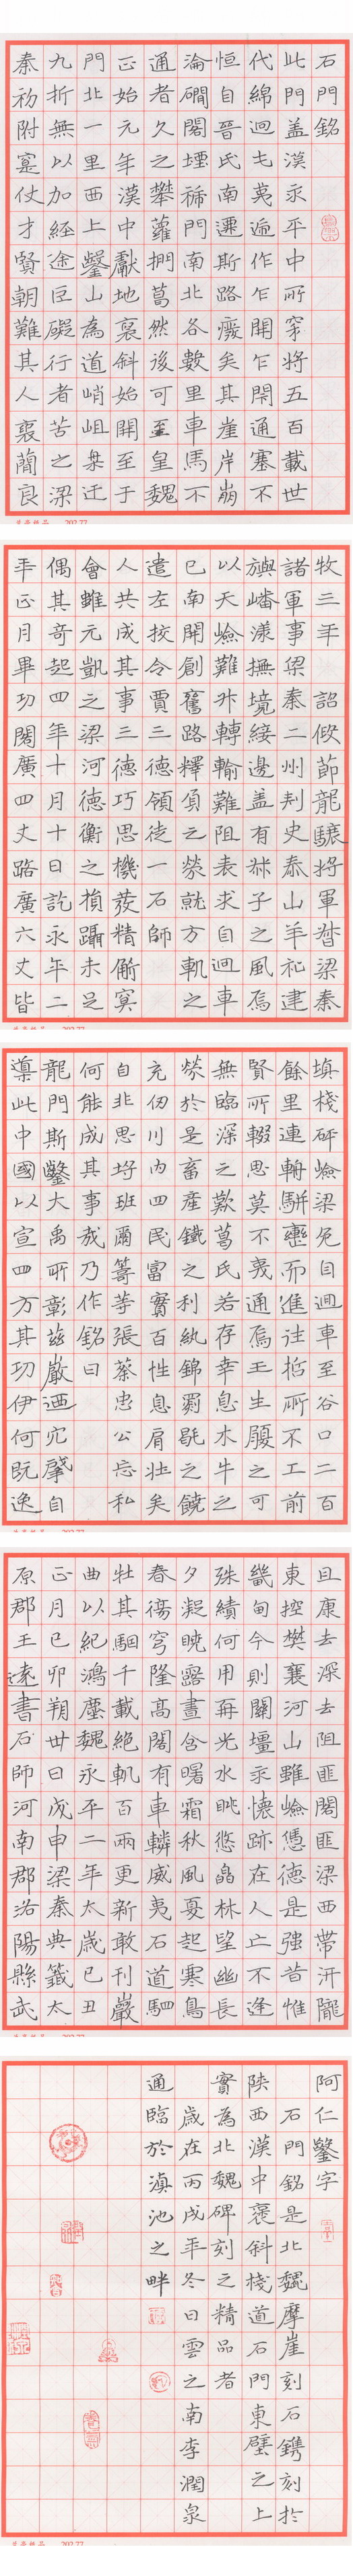 石門銘
此門蓋漢永平中所穿將五百載世
代綿迴屯夷遞作乍開乍閇通塞不
恒自晉氏南遷斯路廢矣其崖岸崩
淪磵閣堙褫門南北各數里車馬不
通者久之攀蘿捫葛然後可至皇魏
正始元年漢中獻地褒斜始開至于
門北一里西上鑿山為道峭岨槃迂
九折無以加経途巨礙行者苦之梁
秦初附寔仗才賢朝難其人褒蕳良
牧三年詔假節龍驤將軍督梁秦
諸軍事梁秦二州刺史泰山羊祉建
旟嶓漾撫境綏邊盖有叔子之風焉
以天嶮難升轉輸難阻表求自迴車
已南開創舊路釋負之勞就方軌之
遣左挍令賈三德領徒一石師
人共成其事三德巧思機發精僃冥
會雖元凱之梁河德衡之損躡未足
偶其奇起四年十月十日訖永年二
年正月畢功閣廣四丈路廣六丈皆
填棧砰嶮梁危自迴車至谷口二百
餘里連輈駢轡而進往哲所不工前
賢所輟思莫不夷通焉王生履之可
無臨深之歎葛氏若存幸息木牛之
勞於是畜產鐵之利紈錦罽毼之饒
充仞川內四民富實百性息肩壯矣
自非思埒班爾籌等張蔡忠公忘私
何能成其事哉乃作銘曰
龍門斯鑿大禹所彰茲巖迺穴肇自
導此中國以宣四方其功伊何既逸
且康去深去阻匪閣匪梁西帶汧隴
東控樊襄河山雖嶮憑德是強昔惟
畿甸今則關壃永懷跡在人亡不逢
殊績何用再光水眺悠皛林望幽長
夕凝曉露晝含曙霜秋風夏起寒鳥
春傷穹隆高閣有車轔威夷石道駟
牡其駟千載絕軌百兩更新敢刊巖
曲以紀鴻塵魏永平二年太歲己丑
正月己卯朔卅日戊申梁秦典籤太
原郡王遠書石師河南郡洛陽縣武
阿仁鑿字
石門銘是北魏摩崖刻石鐫刻於
陝西漢中褒斜棧道石門東壁之上
實為北魏碑刻之精品者
歲在丙戌年冬日雲之南李潤泉
通臨於滇池之畔